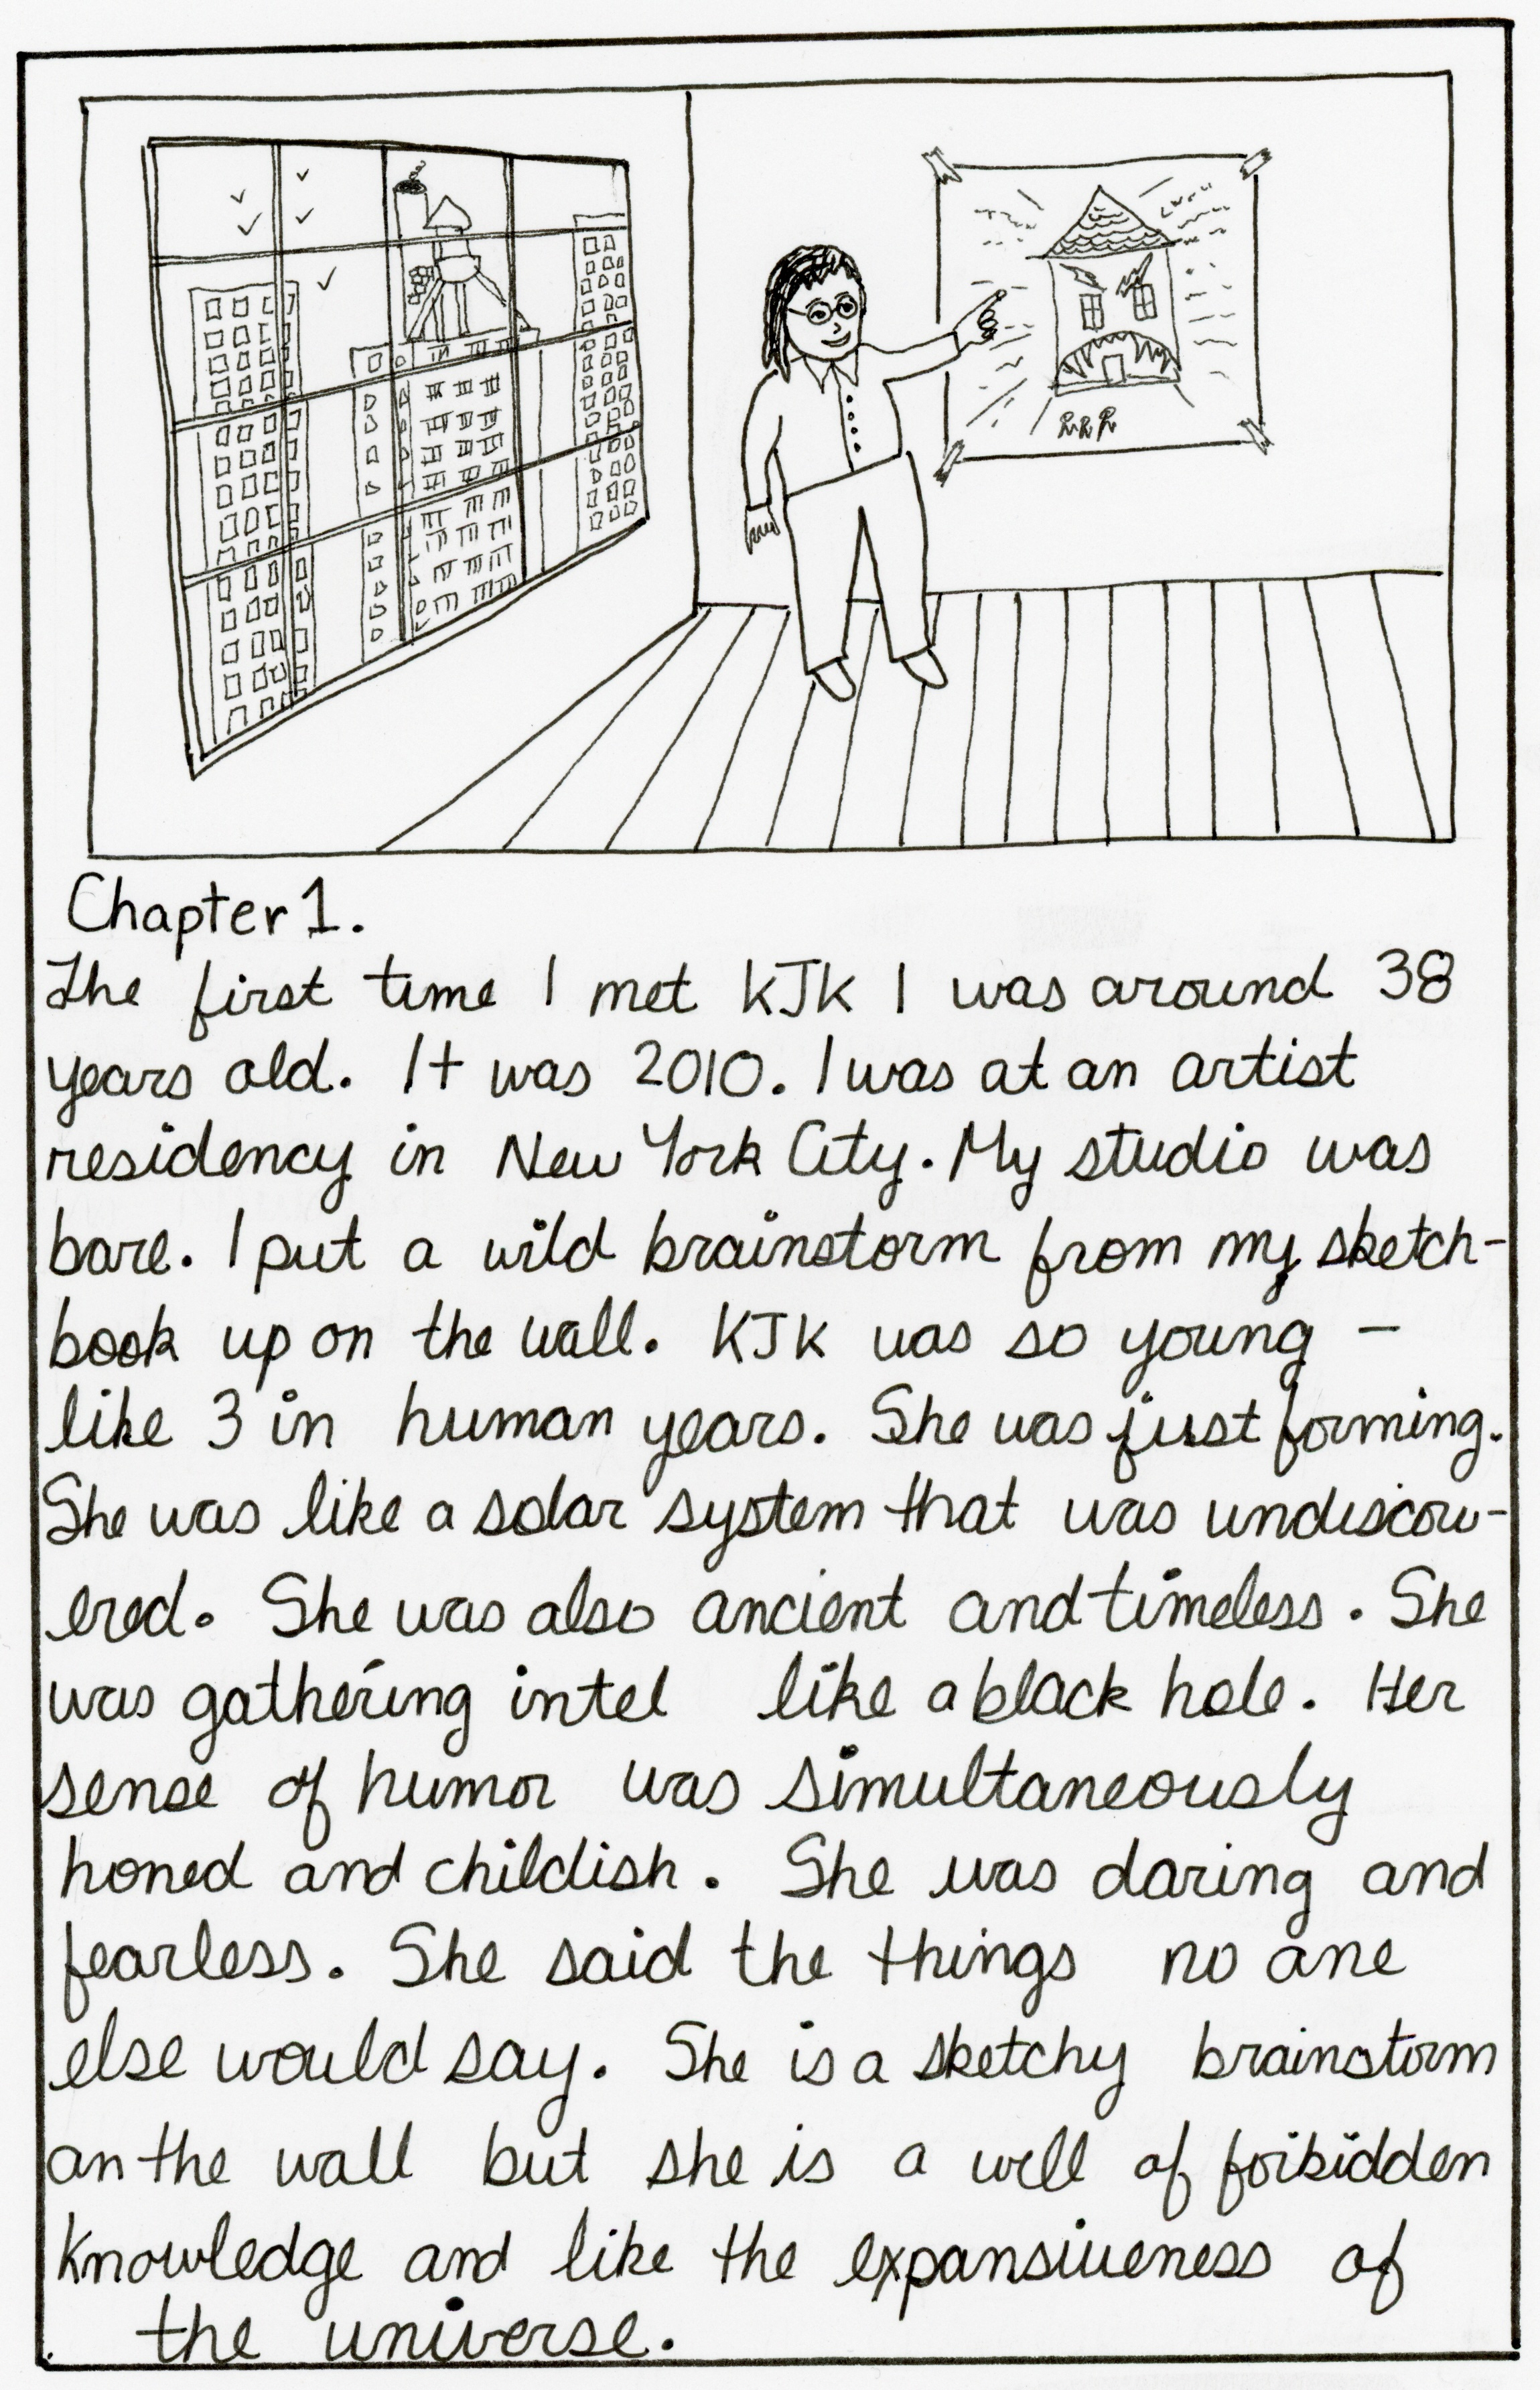 Chapter 1.
The first time I met KJK I was around 38
years old. It was 2010. I was at an artist
residency in New York City. My studio was
bare. I put a wild brainstorm from my sketch-
book up on the wall. KJK was so young –
like 3 in human years. She was just forming.
She was like a solar system that was undiscov-
ered. She was also ancient and timeless. She
was gathering intel like a black hole. Her
sense of humor was simultaneously
honed and childish. She was daring and
fearless. She said the things no one
else would say. She is a sketchy brainstorm
on the wall but she is a well of forbidden
knowledge and like the expansiveness of
the universe.